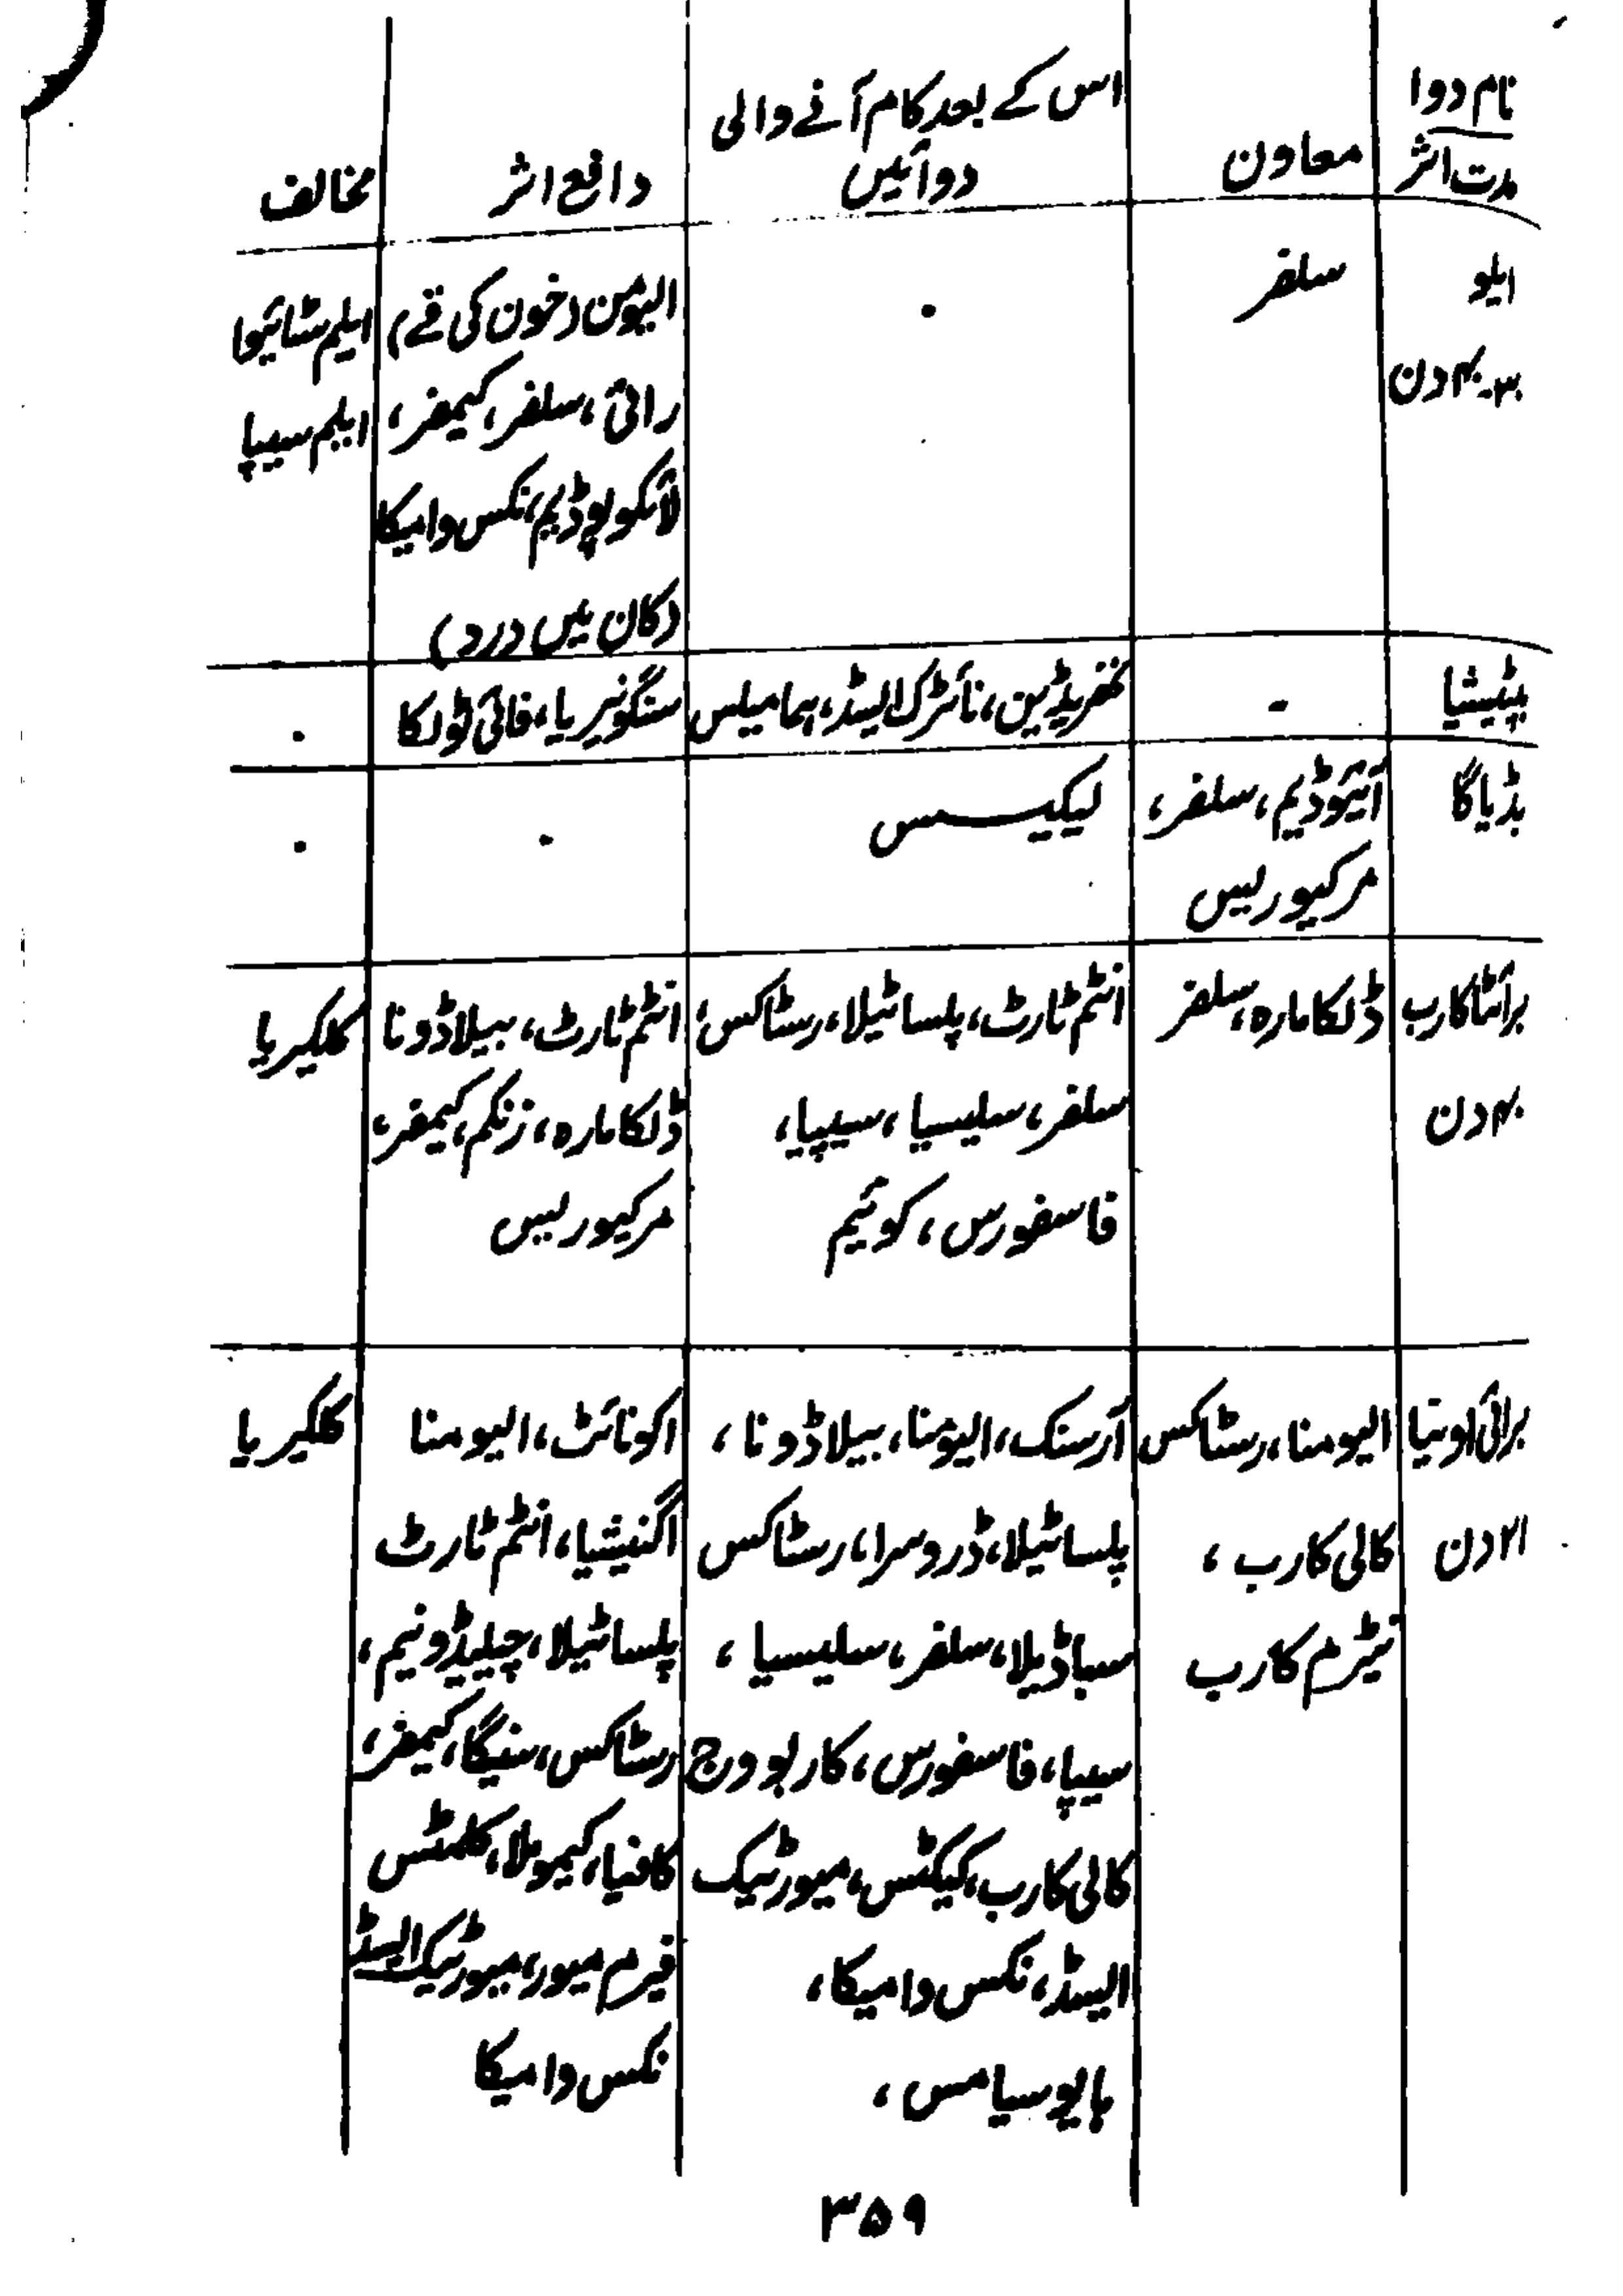 نام دوا
مدت اثر
معاون
اس کے بعد کام آنے والی
دوائیں
دافع اثر
مخالف
ایلو
۳۰-۴۰ دن
سلفر
۰
الیومن (خون کی قے)
رائی، سلفر، کیمفر،
لائکوپوڈیم، نکس وامیکا
(کان میں درد)
ایلیم سٹائیوا
ایلیم سیپا
بپٹیشیا
-
نائٹرک ایسڈ، ہمامیلس
سنگونیریا، فائی ٹولکا
۰
بڈیاگا
آئیوڈیم، سلفر،
مرکیوریس
لیکیسس
۰
۰
برائٹا کارب
۴۰ دن
ڈلکامارہ، سلفر
انٹم ٹارٹ، پلساٹیلا، رسٹاکس،
سلفر، سلیسیا، سیپیا،
فاسفورس، کونیم
انٹم ٹارٹ، بیلاڈونا
ڈلکامارہ، زنکم، کیمفر،
مرکیوریس
کلکیریا
برائی اونیا
۲۱ دن
الیومنا، رسٹاکس
کالی کارب،
نیٹرم کارب
آرسنک، الیومنا، بیلاڈونا،
پلساٹیلا، ڈروسرا، رسٹاکس
سباڈیلا، سلفر، سلیسیا،
سیپیا، فاسفورس، کاربو ورج
کالی کارب، کیکٹس، میورٹیک
ایسڈ، نکس وامیکا،
ہایوسیامس،
اکونائٹ، الیومنا
اگنیشیا، انٹم ٹارٹ
پلساٹیلا، چیلیڈونیم،
رسٹاکس، سنیگا، کیمفر،
کافیا، کیموملا، کلمٹس
فیرم میور، میورٹیک ایسڈ
نکس وامیکا
کلکیریا
۳۵۹